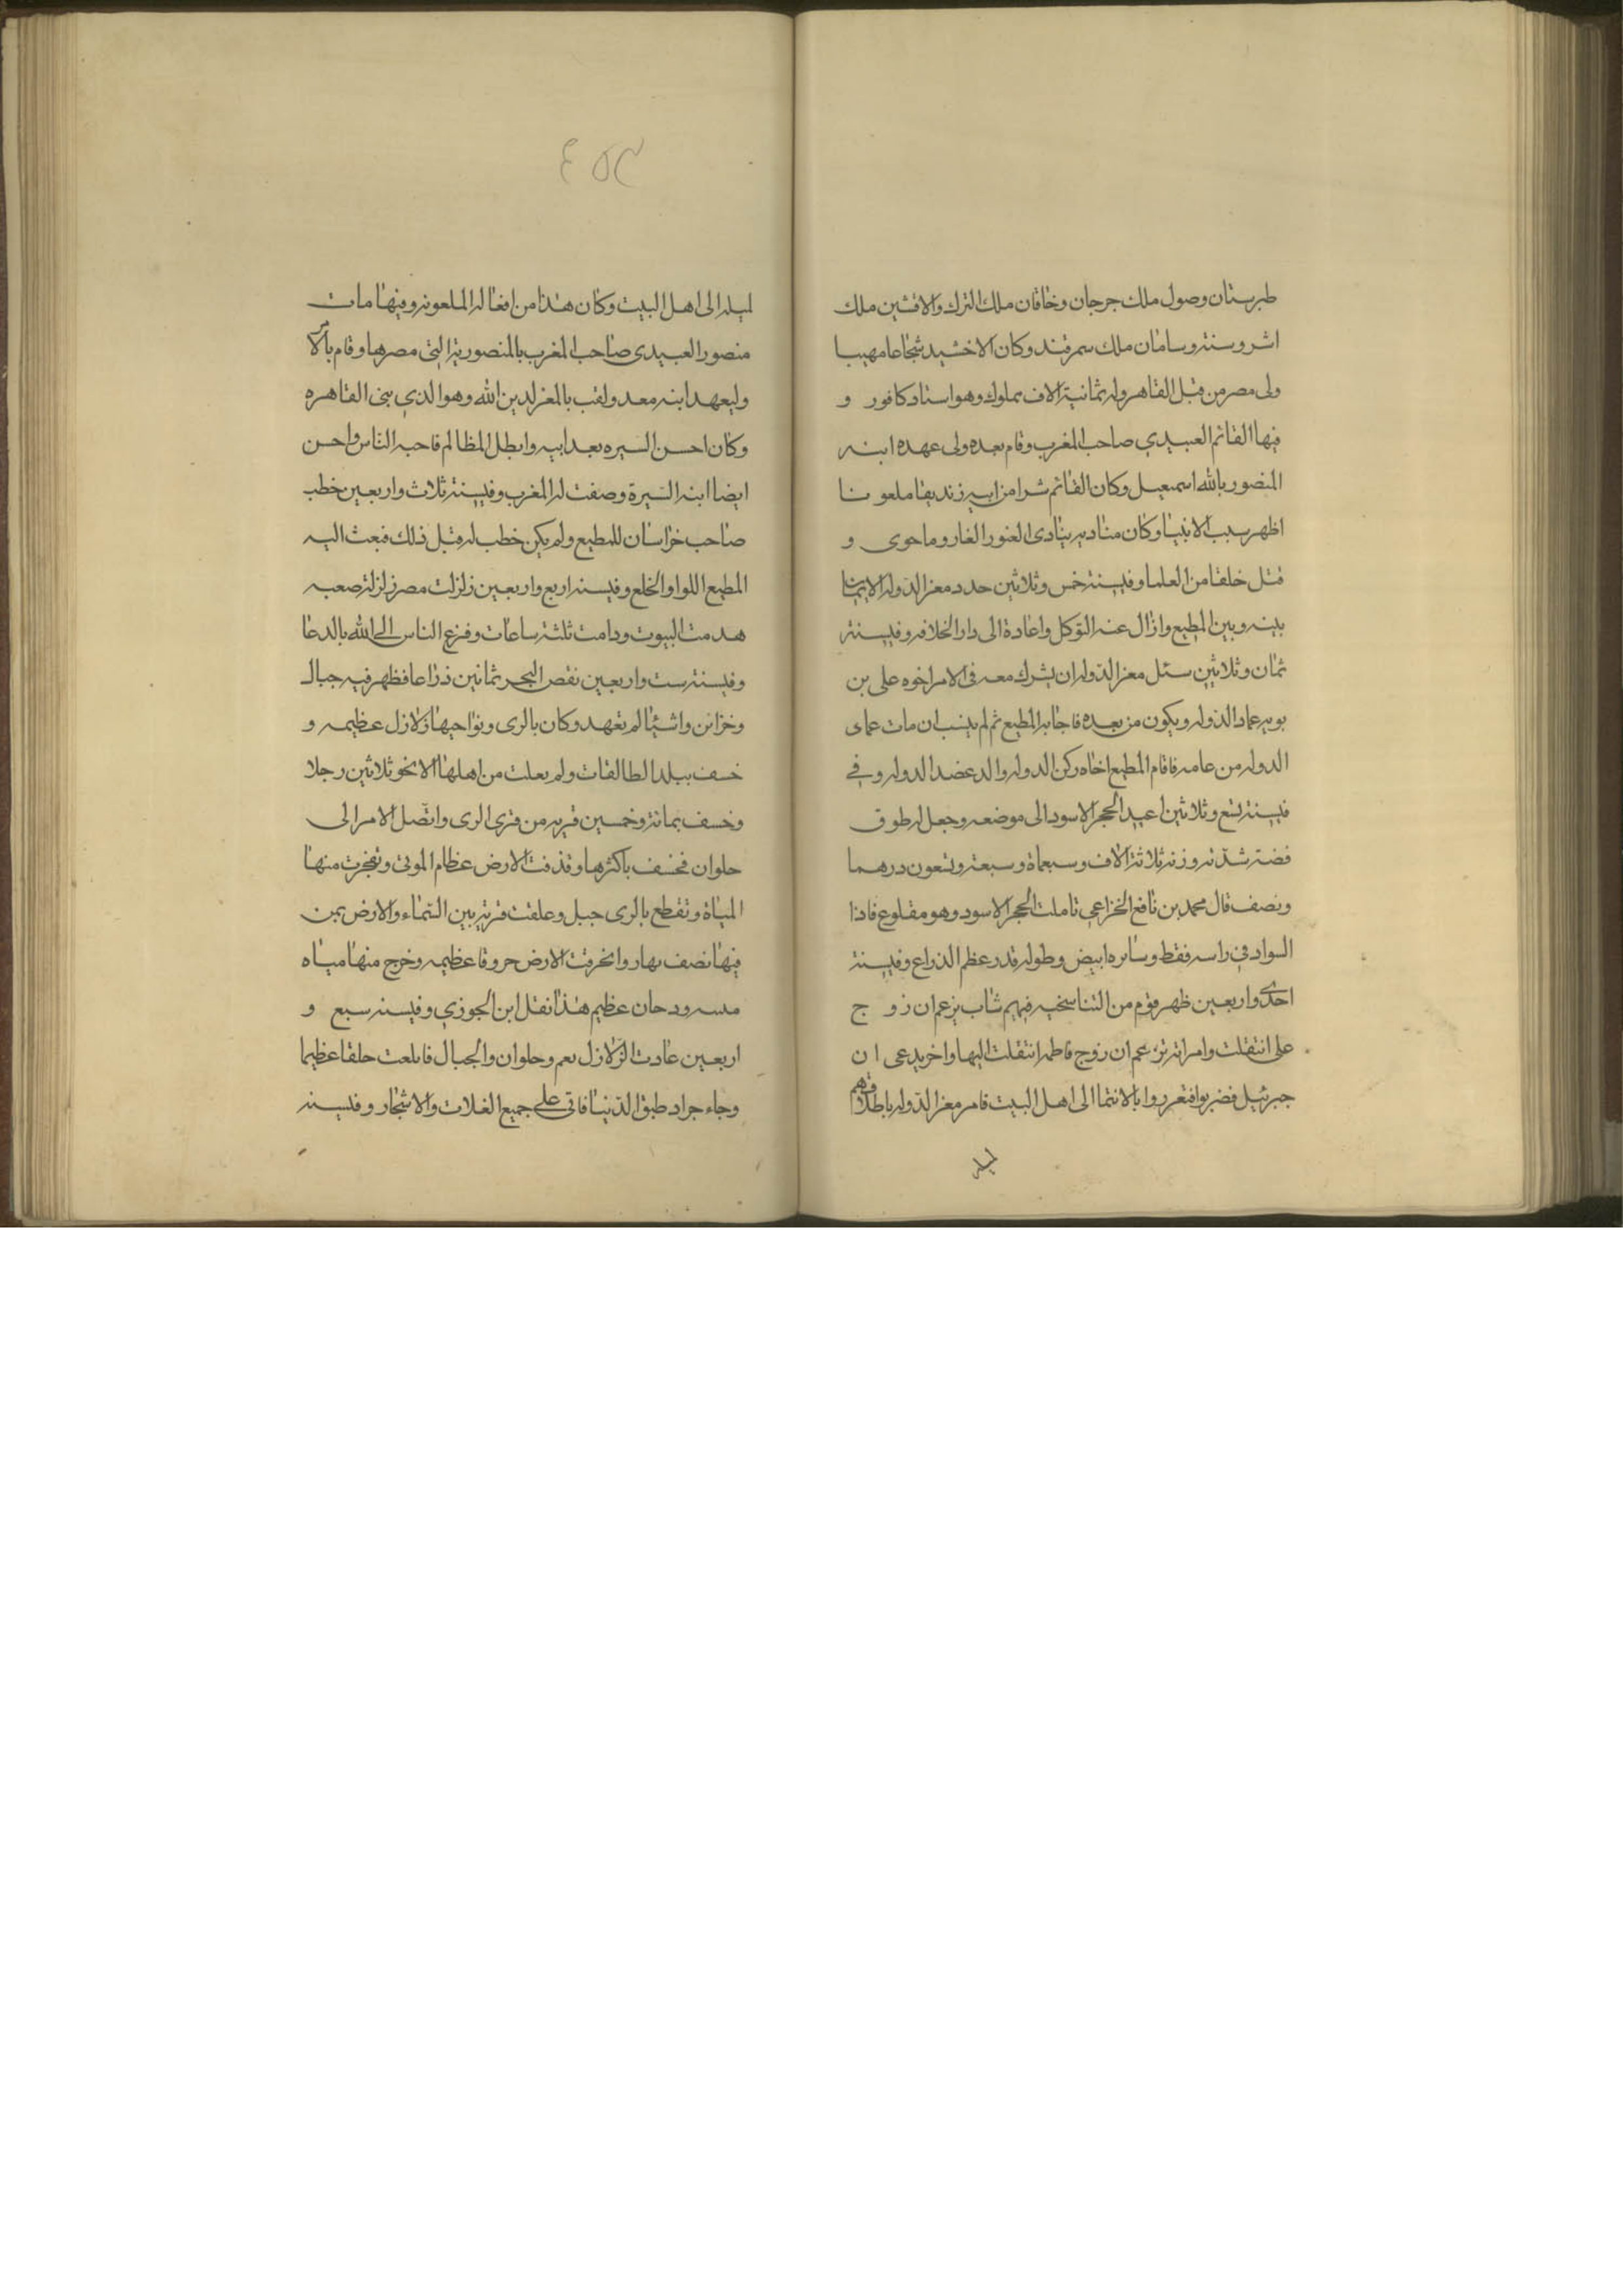 طبرستان وصول ملك جرجان وخاقان ملك الترك والافشين ملك
اشروسنة وسامان ملك سمرقند وكان الاخشيد شجاعا مهيبا
ولى مصر من قبل القاهر وله ثمانية الاف مملوك وهو استاد كافور و
فيها القائم العبيدي صاحب المغرب وقام بعده ولى عهده ابنه
المنصور بالله اسمعيل وكان القائم شرا من ابيه زنديقا ملعونا
اظهر سب الانبيا وكان مناديه ينادى العنور الغار وما حوى و
قتل خلقا من العلما وفيسنة خمس وثلاثين جدد معز الدوله الايمان
بينه وبين المطيع وازال عنه التوكل واعادة الى دار الخلافه وفيسنة
ثمان وثلاثين سئل معز الدوله ان يشرك معه فى الامر اخوه على بن
بويه عماد الدوله ويكون من بعده فاجابه المطيع ثم لم ينشب ان مات عماى
الدوله من عامه فاقام المطيع اخاه ركن الدوله والد عضد الدوله وفي
فيسنة تسع وثلاثين اعيد الحجر الاسود الى موضعه وجعل له طوق
فضة شدته وزنه ثلاثة الاف وسبعماة وسبعة وتسعون درهما
ونصف قال محمد بن نافع الخزاعي تاملت الحجر الاسود وهو مقلوع فاذا
السواد في راسه فقط وسائره ابيض وطوله قدر عظم الذراع وفيسنة
احدى واربعين ظهر قوم من التناسخيه فيهم شاب يزعم ان زوج
على انتقلت وامراته تزعم ان زوج فاطمه انتقلت اليها واخر يدعى ان
جبرئيل فضربوا فتعرروا بالانتما الى اهل البيت فامر معز الدوله باطلاقهم
لميله
٤٥٩
لميله الى اهل البيت وكان هذا من افعاله الملعونه وفيها مات
منصور العبيدى صاحب المغرب بالمنصورية التى مصرها وقام بالامر
وليعهد ابنه معد ولقب بالمعز لدين الله وهو الذي بنى القاهره
وكان احسن السيره بعد ابيه وابطل المظالم فاحبه الناس واحسن
ايضا ابنه السيرة وصفت له المغرب وفيسنة ثلاث واربعين خطب
صاحب خراسان للمطيع ولم يكن خطب له قبل ذلك فبعث اليه
المطيع اللوا والخلع وفيسنه اربع واربعين زلزلت مصر زلزلة صعبه
هدمت البيوت ودامت ثلثة ساعات وفزع الناس الى الله بالدعا
وفيسنة ست واربعين نقص البحر ثمانين ذراعا فظهر فيه جبال
وخزائن واشيئا لم تعهد وكان بالرى ونواحيها زلازل عظيمه و
خسف ببلد الطالقات ولم يعلت من اهلها الا نحو ثلاثين رجلا
وخسف بمائة وخمسين قريه من قرى الرى واتصل الامر الى
حلوان فخسف باكثرها وقذفت الارض عظام الموتى وتفجرت منها
المياة وتقطع بالرى جبل وعلقت قرية بين السماء والارض بمن
فيها نصف نهار وانخرقت الارض خروقا عظيمه وخرج منها مياه
مسه ودخان عظيم هذا نقل ابن الجوزي وفيسنه سبع و
اربعين عادت الزلازل بعم وحلوان والجبال فاتلعت خلقا عظيما
وجاء جراد طبق الدنيا فاتى على جميع الغلات والاشجار وفيسنه